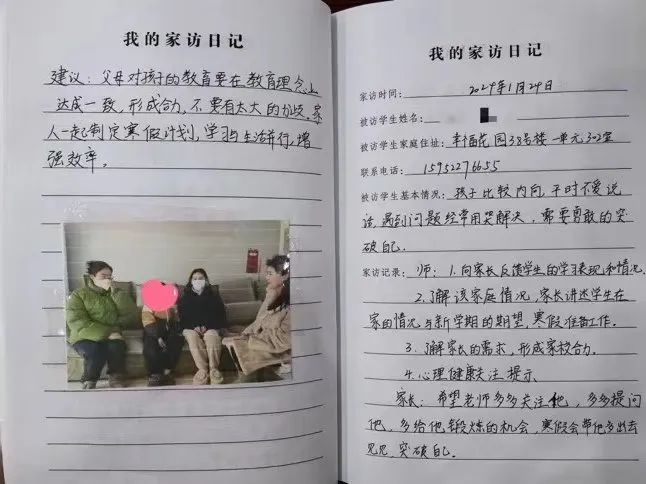 我的家访日记
建议：父母对孩子的教育要在教育理念上
达成一致，形成合力，不要有太大的分歧。家
人一起制定寒假计划，学习与生活并行，增
强效率。
我的家访日记
家访时间：2024年1月29日
被访学生姓名：
被访学生家庭住址：幸福花园38号楼一单元302室
联系电话：15952276655
被访学生基本情况：孩子比较内向，平时不爱说
话，遇到问题经常用哭解决，需要勇敢的突
破自己.
家访记录：师：1.向家长反馈学生的学习表现和情况.
2.了解该家庭情况，家长讲述学生在
家的情况与新学期的期望，寒假准备工作.
3.了解家长的需求，形成家校合力.
4.心理健康关注提示.
家长：希望老师多多关注他，多多提问
他，多给他锻炼的机会，寒假会带他多出去
见见，突破自己.